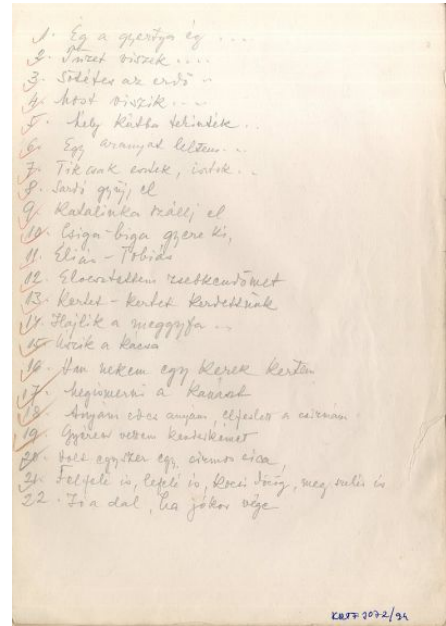 1. Ég a gyertya ég ....
2. Tüzet viszek ....
3. Sötétes az erdő ..
4. Most viszik ....
5. Mely kútba tekinték ..
6. Egy aranyat leltem ...
7. Tik csak estek,
8. Sardó gyűj, el
9. Katalinka szállj el
10. Csiga-biga gyere ki,
11. Éliás - Tobiás
12. Elvesztettem zsebkendőmet
13. Kertet - kertet kerítettünk
14. Hajlik a meggyfa ..
15. Úszik a kácsa
16. Van nekem egy kerek kertem
17. Megismerni a kanászt
18. Anyám édes anyám, elfeslett a csizmám.
19. Gyerekek vessem kenderkémet
20. Volt egyszer egy cirmos cica,
21. Felfelé is, lefelé is, kocsi dörög, meg
22. Jó a dal, ha jókor vége
KUTF 7072/94